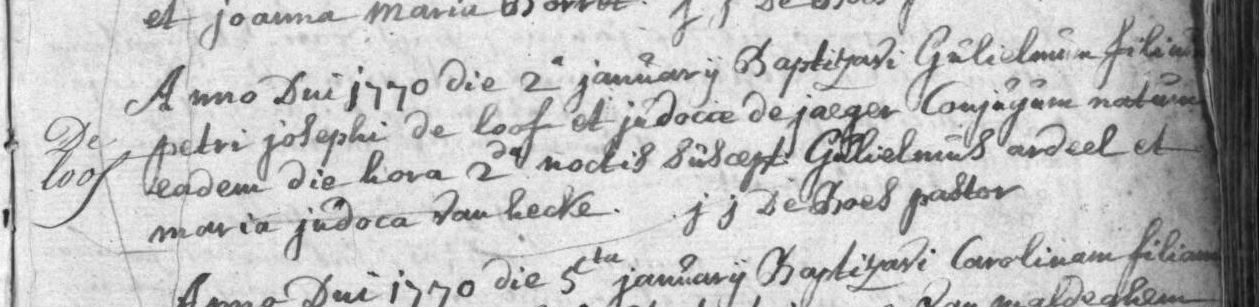 et joanna maria j j De Boes
Anno Dni 1770 die 2a januarij Baptizavi Gulielmum filium
De loof
petri josephi de loof et judocæ de jaeger Conjugum natum
eadem die hora 2da noctis suscept: Gulielmus ardeel et
maria judoca van hecke. j j De Boes pastor
Anno Dni 1770 die 5ta januarij Baptizavi Carolinam filiam
van maldeghem